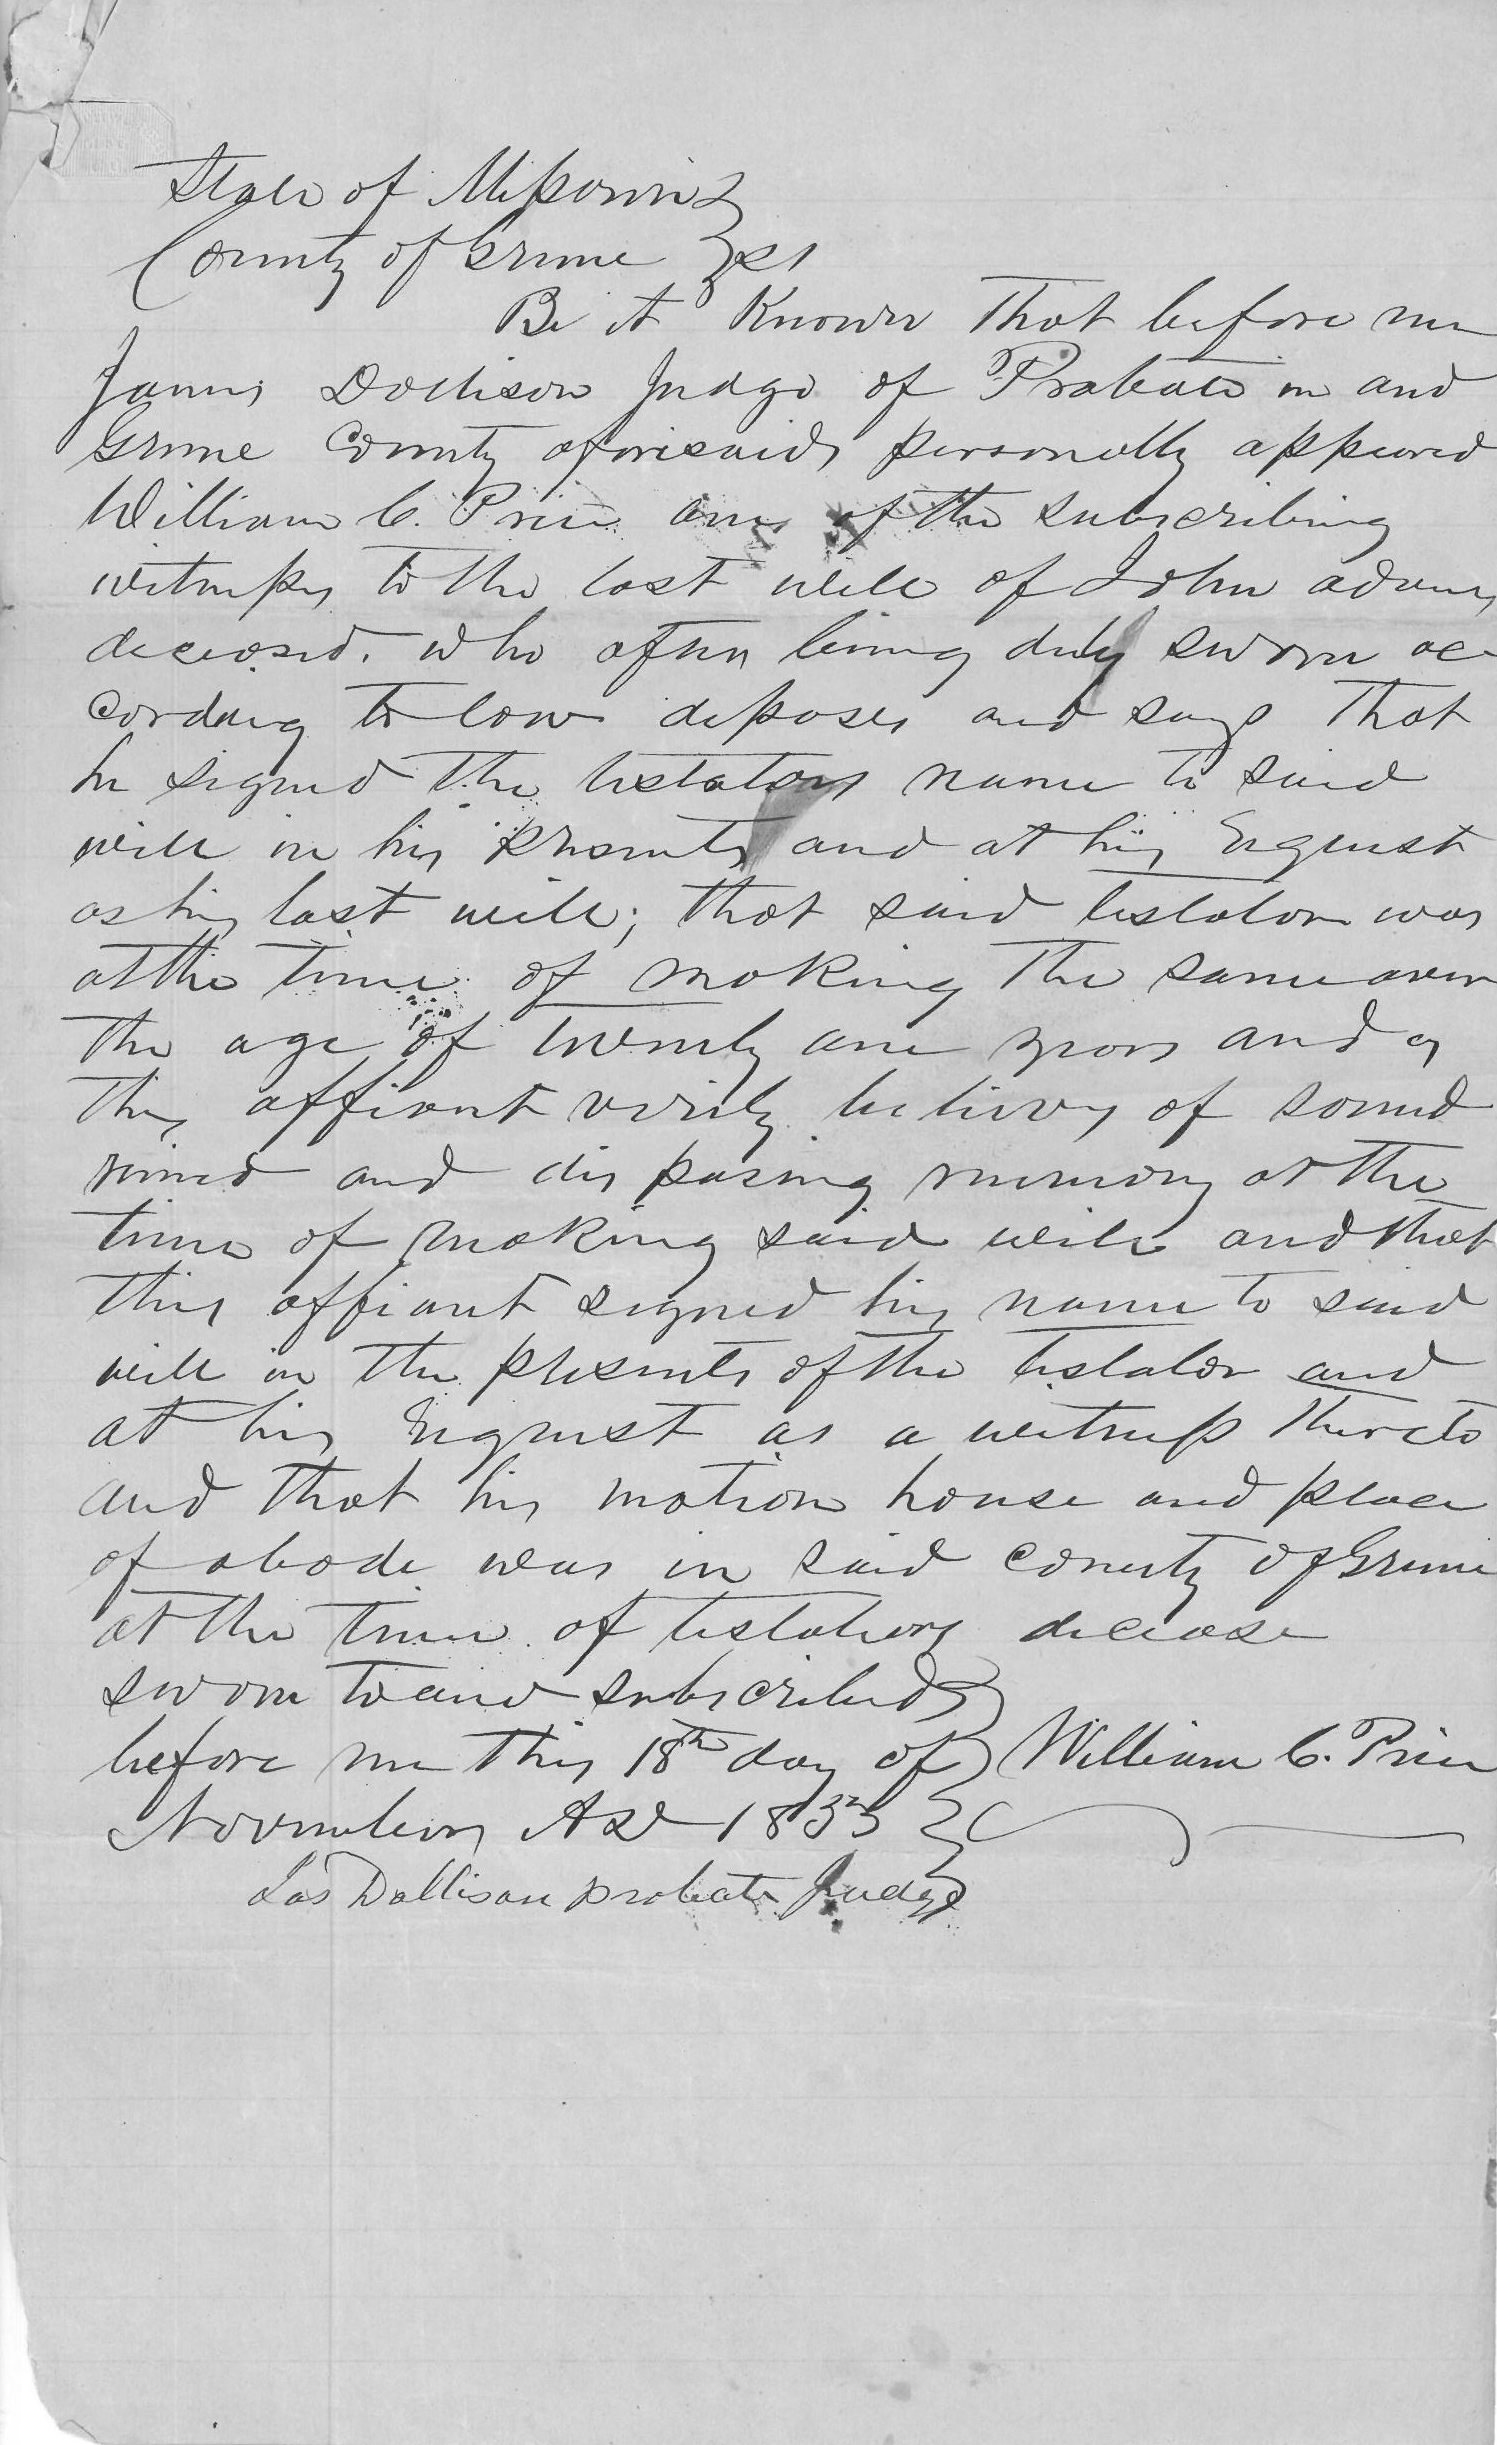 State of Missouri }
County of Greene } sst
Be it Known that before me
James Dollison Judge of Probate in and
Greene County aforesaid, personally appeared
William C. Price one of the subscribing
witnesses to the last will of John Adams
deceased. who after being duly sworn ac
cording to law deposes and says that
he signed the testators name to said
will in his presents and at his request
as his last will; that said testator was
at the time of making the same over
the age of twenty one years and as
this affiant verily believes of sound
mind and disposing memory at the
time of making said will and that
this affiant signed his name to said
will in the presents of the testator and
at his request as a witness thereto
and that his mation house and place
of abode was in said county of Greene
at the time of testators decease
sworn to and subscribed }
before me this 18th day of } William C. Price
November AD 1853 }
Jas Dollison probate Judge